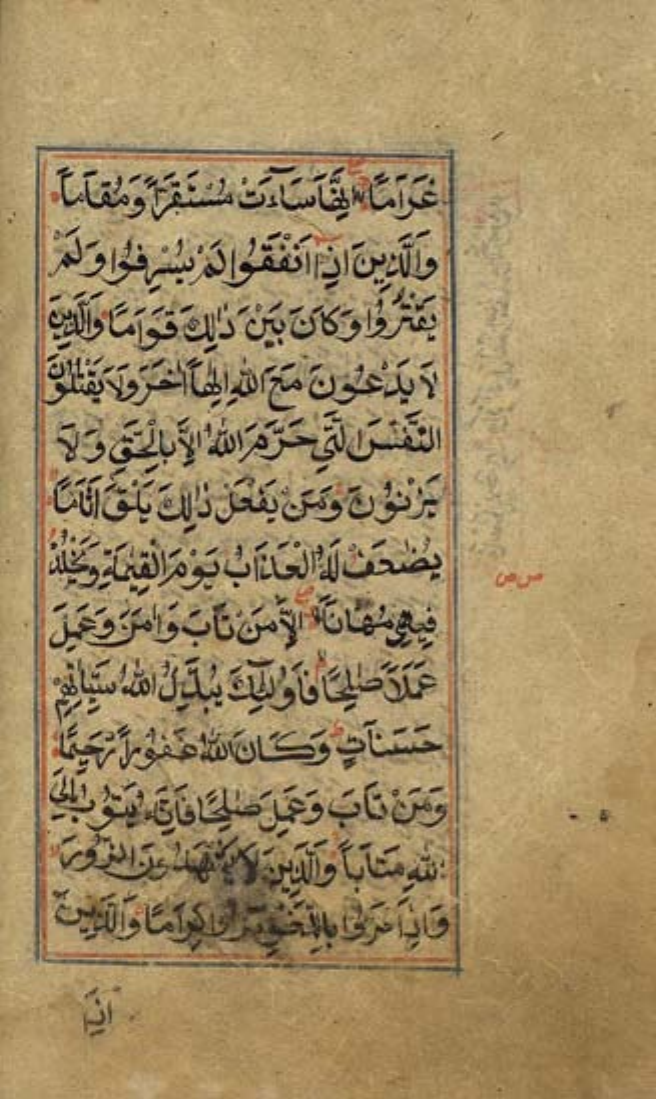 غَرَامًا اِنَّهَا سَاءَتْ مُسْتَقَرًّا وَمُقَامًا
وَالَّذِينَ اِذَا اَنْفَقُوا لَمْ يُسْرِفُوا وَلَمْ
يَقْتُرُوا وَكَانَ بَيْنَ ذٰلِكَ قَوَامًا وَالَّذِينَ
لَا يَدْعُونَ مَعَ اللهِ اِلٰهًا اٰخَرَ وَلَا يَقْتُلُونَ
النَّفْسَ الَّتِي حَرَّمَ اللهُ اِلَّا بِالْحَقِّ وَلَا
يَزْنُونَ وَمَنْ يَفْعَلْ ذٰلِكَ يَلْقَ اَثَامًا
يُضٰعَفْ لَهُ الْعَذَابُ يَوْمَ الْقِيٰمَةِ وَيَخْلُدْ
فِيهِ مُهَانًا اِلَّا مَنْ تَابَ وَاٰمَنَ وَعَمِلَ
عَمَلًا صٰلِحًا فَاُولٰئِكَ يُبَدِّلُ اللهُ سَيِّاٰتِهِمْ
حَسَنَاتٍ وَكَانَ اللهُ غَفُورًا رَحِيمًا
وَمَنْ تَابَ وَعَمِلَ صٰلِحًا فَاِنَّهُ يَتُوبُ اِلَى
اللهِ مَتَابًا وَالَّذِينَ لَا يَشْهَدُونَ الزُّورَ
وَاِذَا مَرُّوا بِاللَّغْوِ مَرُّوا كِرَامًا وَالَّذِينَ
اِذَا